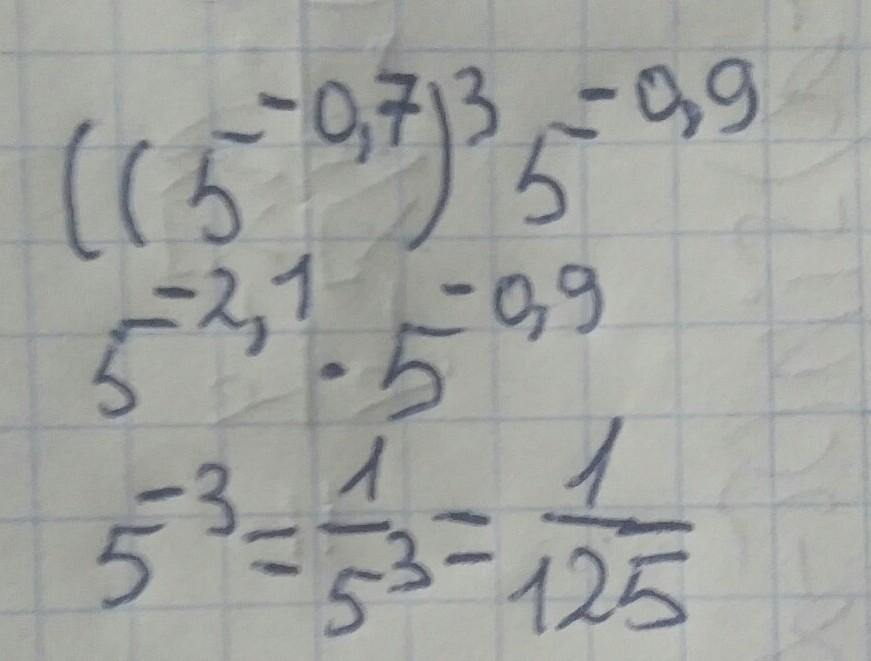 ((5^{-0,7})^3 5^{-0,9}
5^{-2,1} · 5^{-0,9}
5^{-3} = \frac{1}{5^3} = \frac{1}{125}